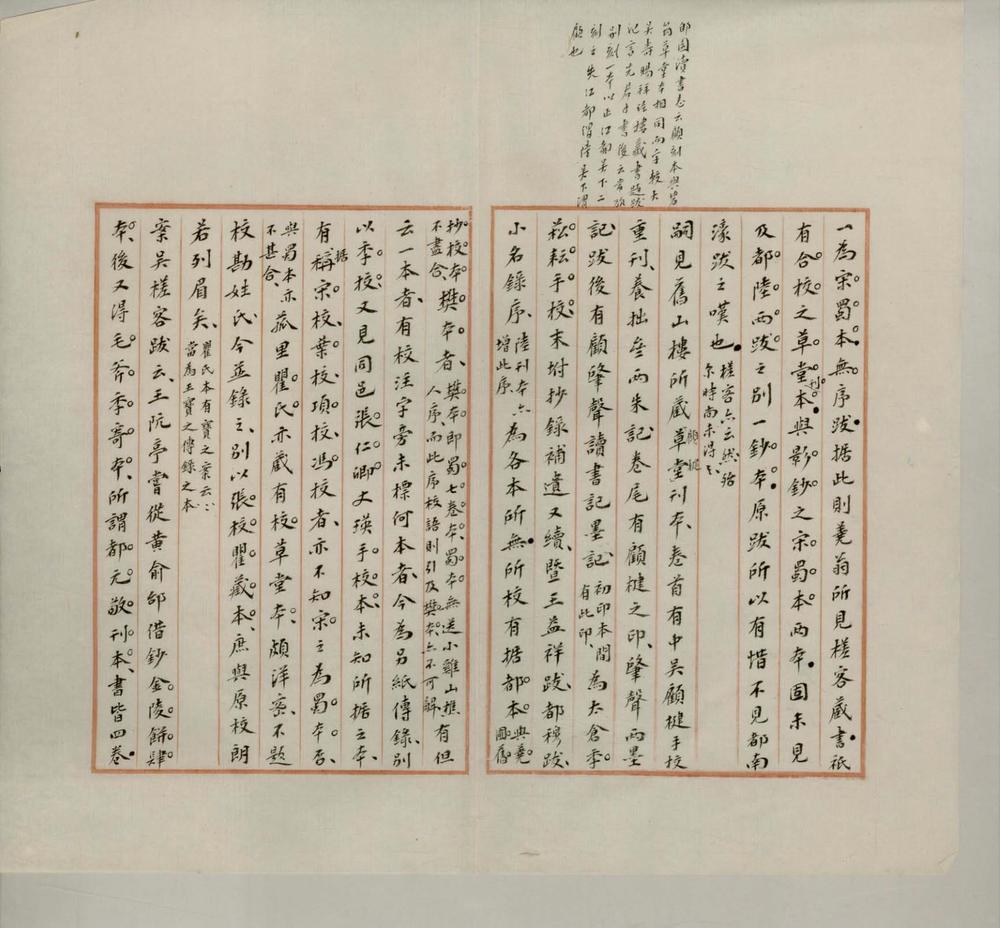 郎園讀書志云顧刻本與皆
翁草堂本相同而字較大
吴壽暘拜經樓藏書題跋
記言先君子書後云常欲
別刻一本以正江都吴下二
刻之失江都謂陸吴下謂
顧也
一為宋蜀本無序跋据此則蕘翁所見槎客藏書祇
有合校之草堂刊本與影鈔之宋蜀本两本固未見
及都陸两跋之别一鈔本原跋所以有惜不見都南
濠跋之嘆也槎客亦云然殆尔時尚未得
嗣見舊山樓所藏顧楗草堂刊本卷首有中吴顧楗手校
重刊養拙叄两朱記卷尾有顧楗之印肇聲两墨
記跋後有顧肇聲讀書記墨記初印本間有此印為太倉季
菘耘手校末坿抄錄補遺又續暨王益祥跋都穆跋
小名錄序陸刊本亦增此序為各本所無所校有据都本與蕘圃舊
抄校本不盡合樊本者樊本即蜀七卷本蜀本無送小雞山樵人序而此序校語則引及樊本亦不可解有但
云一本者有校注字旁未標何本者今為另紙傳錄别
以季校又見同邑張仁卿丈瑛手校本未知所据之本
有稱据宋校葉校項校馮校者亦不知宋之為蜀本否
與蜀本亦不甚合菰里瞿氏亦藏有校草堂本頗詳密不題
校勘姓氏今並錄之别以張校瞿藏本庶與原校朗
若列眉矣瞿氏本有寳之案云云當為王寳之傳錄之本
案吴槎客跋云王阮亭嘗從黄俞邰借鈔金陵餅肆
本後又得毛斧季寄本所謂都元敬刊本書皆四卷